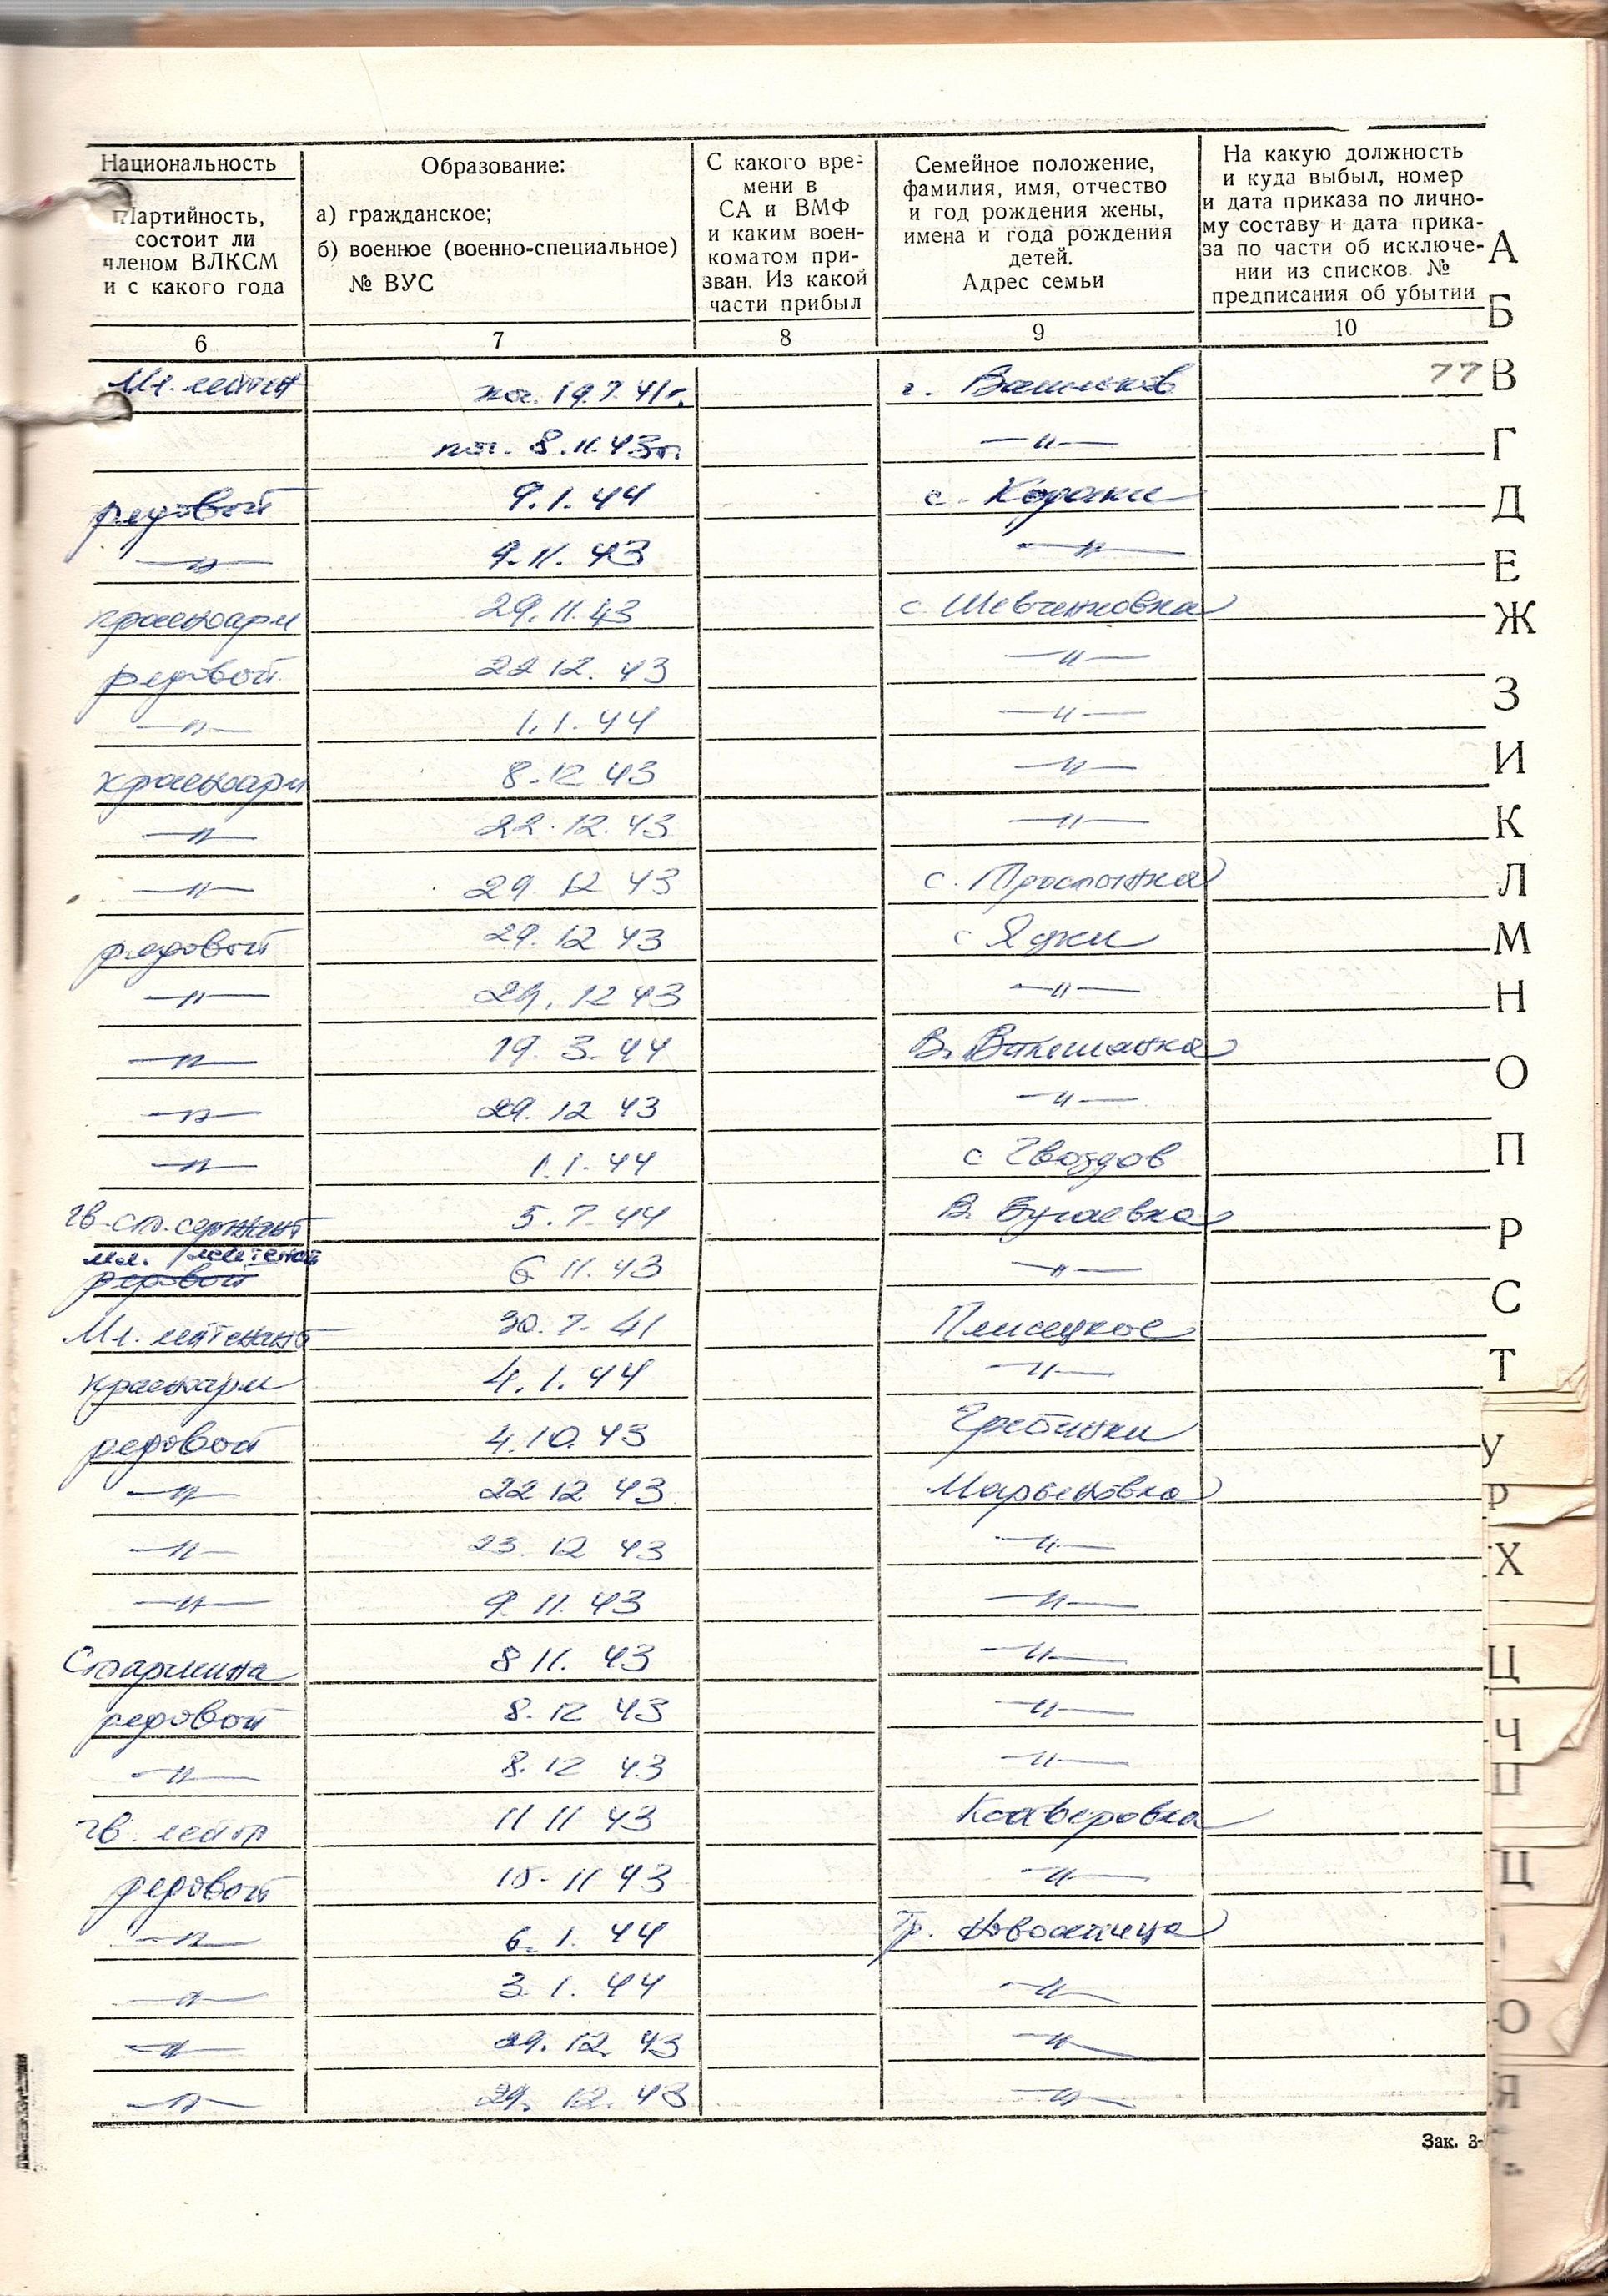 Национальность
Партийность,
состоит ли
членом ВЛКСМ
и с какого года
Образование:
а) гражданское;
б) военное (военно-специальное)
№ ВУС
С какого вре-
мени в
СА и ВМФ
и каким воен-
коматом при-
зван. Из какой
части прибыл
Семейное положение,
фамилия, имя, отчество
и год рождения жены,
имена и года рождения
детей.
Адрес семьи
На какую должность
и куда выбыл, номер
и дата приказа по лично-
му составу и дата прика-
за по части об исключе-
нии из списков. №
предписания об убытии
6 7 8 9 10
Мл. лейтен 19.7.41г. г. Васильков 77
8.11.43г. —〃—
редовой 9.1.44 с.
—〃— 9.11.43 —〃—
красноарм 29.11.43 с. Шевченковка
редовой 22 12. 43 —〃—
—〃— 1.1.44 —〃—
красноарм 8.12 43 —〃—
—〃— 22.12.43 —〃—
—〃— 29. 12 43 с.
редовой 29. 12 43 с
—〃— 29. 12 43 —〃—
—〃— 19. 3. 44 В.
—〃— 29. 12 43 —〃—
—〃— 1.1.44 с Гвоздов
гв. ст. сержант 5. 7. 44 В. Бугаевка
мл. лейтенант
редовой 6 11. 43 —〃—
Мл. лейтенант 30. 7. 41 Плисецкое
красноарм 4. 1. 44 —〃—
редовой 4.10.43 Гребинки
—〃— 22 12 43 Марьяновка
—〃— 23. 12 43 —〃—
—〃— 9. 11. 43 —〃—
Старшина 8 11. 43 —〃—
редовой 8. 12 43 —〃—
—〃— 8. 12 43 —〃—
гв. лейт 11 11 43 Ксаверовка
редовой 15. 11 43 —〃—
—〃— 6. 1. 44 Тр. Новоселица
—〃— 3. 1. 44 —〃—
—〃— 29. 12. 43 —〃—
—〃— 29. 12. 43 —〃—
Зак. 3-
А
Б
В
Г
Д
Е
Ж
З
И
К
Л
М
Н
О
П
Р
С
Т
У
Х
Ц
Ч
Ц
О
Я